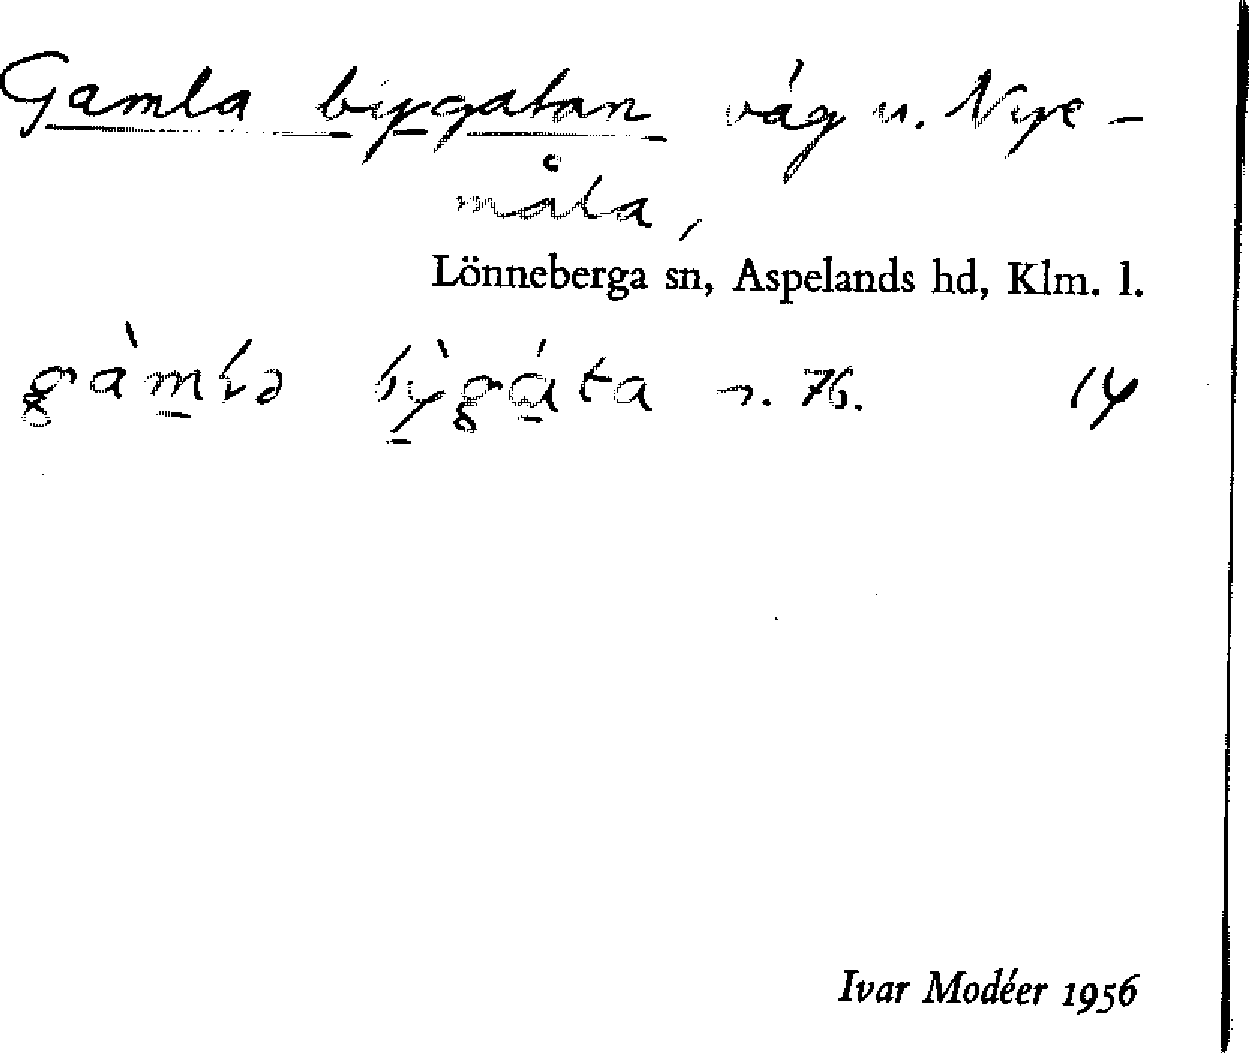 Gamla bygatan väg u. Nye-
måla,
Lönneberga sn, Aspelands hd, Klm. l.
gàmla bỳgáta 76. 14
Ivar Modéer 1956